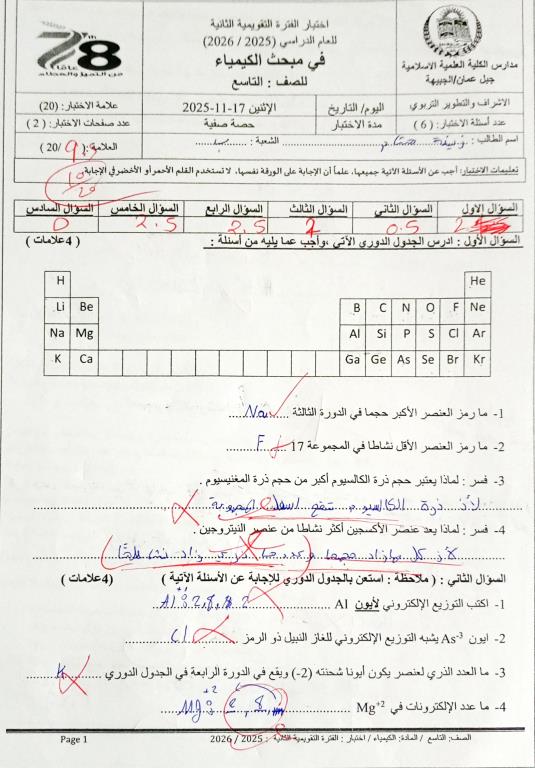 اختبار الفترة التقويمية الثانية
للعام الدراسي (2025 / 2026)
في مبحث الكيمياء
للصف : التاسع
78
عامًا
من التميز والعطاء
مدارس الكلية العلمية الاسلامية
جبل عمان/الجبيهة
الاشراف والتطوير التربوي
اليوم/ التاريخ
الإثنين 17-11-2025
علامة الاختبار: (20)
عدد أسئلة الاختبار: ( 6 )
مدة الاختبار
حصة صفية
عدد صفحات الاختبار: ( 2 )
اسم الطالب:
الشعبة :
العلامة:( /20)
10/20
تعليمات الاختبار: أجب عن الأسئلة الآتية جميعها، علماً أن الإجابة على الورقة نفسها. لا تستخدم القلم الأحمر أو الأخضر في الإجابة.
السؤال الاول السؤال الثاني السؤال الثالث السؤال الرابع السؤال الخامس السؤال السادس
2 0.5 2 2.5 2.5 0
السؤال الأول : ادرس الجدول الدوري الآتي ،وأجب عما يليه من أسئلة : ( 4علامات )
H He
Li Be B C N O F Ne
Na Mg Al Si P S Cl Ar
K Ca Ga Ge As Se Br Kr
1- ما رمز العنصر الأكبر حجما في الدورة الثالثة Na
2- ما رمز العنصر الأقل نشاطا في المجموعة 17 F
3- فسر : لماذا يعتبر حجم ذرة الكالسيوم أكبر من حجم ذرة المغنيسيوم .
لأن ذرة الكالسيوم تقع اسفل المجموعة
4- فسر : لماذا يعد عنصر الأكسجين أكثر نشاطا من عنصر النيتروجين.
لأن كل ما زاد حجمها زاد نشاطها
السؤال الثاني : ( ملاحظة : استعن بالجدول الدوري للإجابة عن الأسئلة الآتية ) (4علامات )
1- اكتب التوزيع الإلكتروني لأيون Al Al: 2,8,8,2
2- ايون As-3 يشبه التوزيع الإلكتروني للغاز النبيل ذو الرمز Cl
3- ما العدد الذري لعنصر يكون أيونا شحنته (2-) ويقع في الدورة الرابعة في الجدول الدوري K
4- ما عدد الإلكترونات في Mg+2 Mg+2: 2,8
الصف: التاسع / المادة: الكيمياء / اختبار : الفترة التقويمية الثانية : 2025 / 2026 Page 1